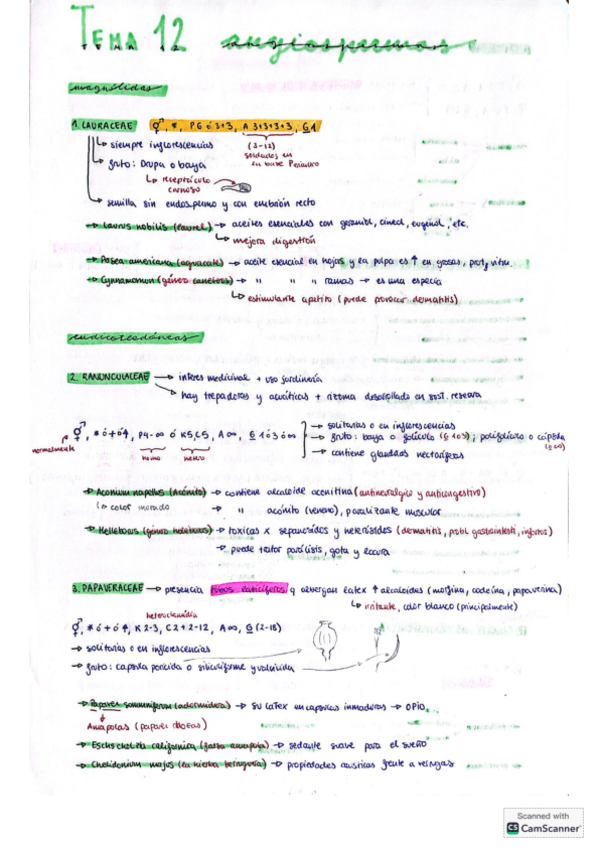 TEMA 12 angiospermas
magnólidas
1. LAURACEAE ⚥, *, P6 ó 3+3, A 3+3+3+3, G1
siempre inflorescencias (3-12)
soldados en
fruto: Drupa o baya en base Periantio
receptáculo
carnoso
semilla sin endospermo y con embrión recto
Laurus nobilis (laurel) → aceites esenciales con geraniol, cineol, eugenol, etc.
mejora digestión
Persea americana (aguacate) → aceite esencial en hojas y la pulpa es ↑ en grasas, prot, vita.
Cynnamomum (género canelero) → " " " ramas → es una especia
estimulante apetito (puede provocar dermatitis)
eudicotiledóneas
2. RANUNCULACEAE → interés medicinal + uso jardinería
hay trepadoras y acuáticas + rizoma desarrollado en sust. reserva
solitarias o en inflorescencias
⚥, * ó + ó ↓, P4-∞ ó K5, C5, A∞, G 1 ó 3 ó ∞ → fruto: baya o folículo (G 1 ó 3); polifolículo o cápsula
normalmente
contiene glándulas nectaríferas
Aconium napellus (Acónito) → contiene alcaloide aconitina (antineurálgico y anticongestivo)
color morado → " acónito (veneno), paralizante muscular
Helleborus (género heleboros) → tóxicas x saponósidos y heterósidos (dermatitis, probl gastrointesti,
puede tratar parálisis, gota y locura
3. PAPAVERACEAE → presencia tubos laticíferos q albergan latex ↑ alcaloides (morfina, codeína, papaverina)
irritante, color blanco (principalmente)
heteroclamídea
⚥, * ó + ó ↓, K 2-3, C 2+2-12, A∞, G (2-18)
solitarias o en inflorescencias
fruto: capsula poricida o silicuiforme y valvicida
Papaver somniferum (adormidera) → su latex en capsulas inmaduras → OPIO
Amapolas (papaver rhoeas)
Eschscholzia californica (falsa amapola) → sedante suave para el sueño
Chelidonium majus (la hierba verruguera) → propiedades causticas frente a verrugas
Scanned with
CS CamScanner